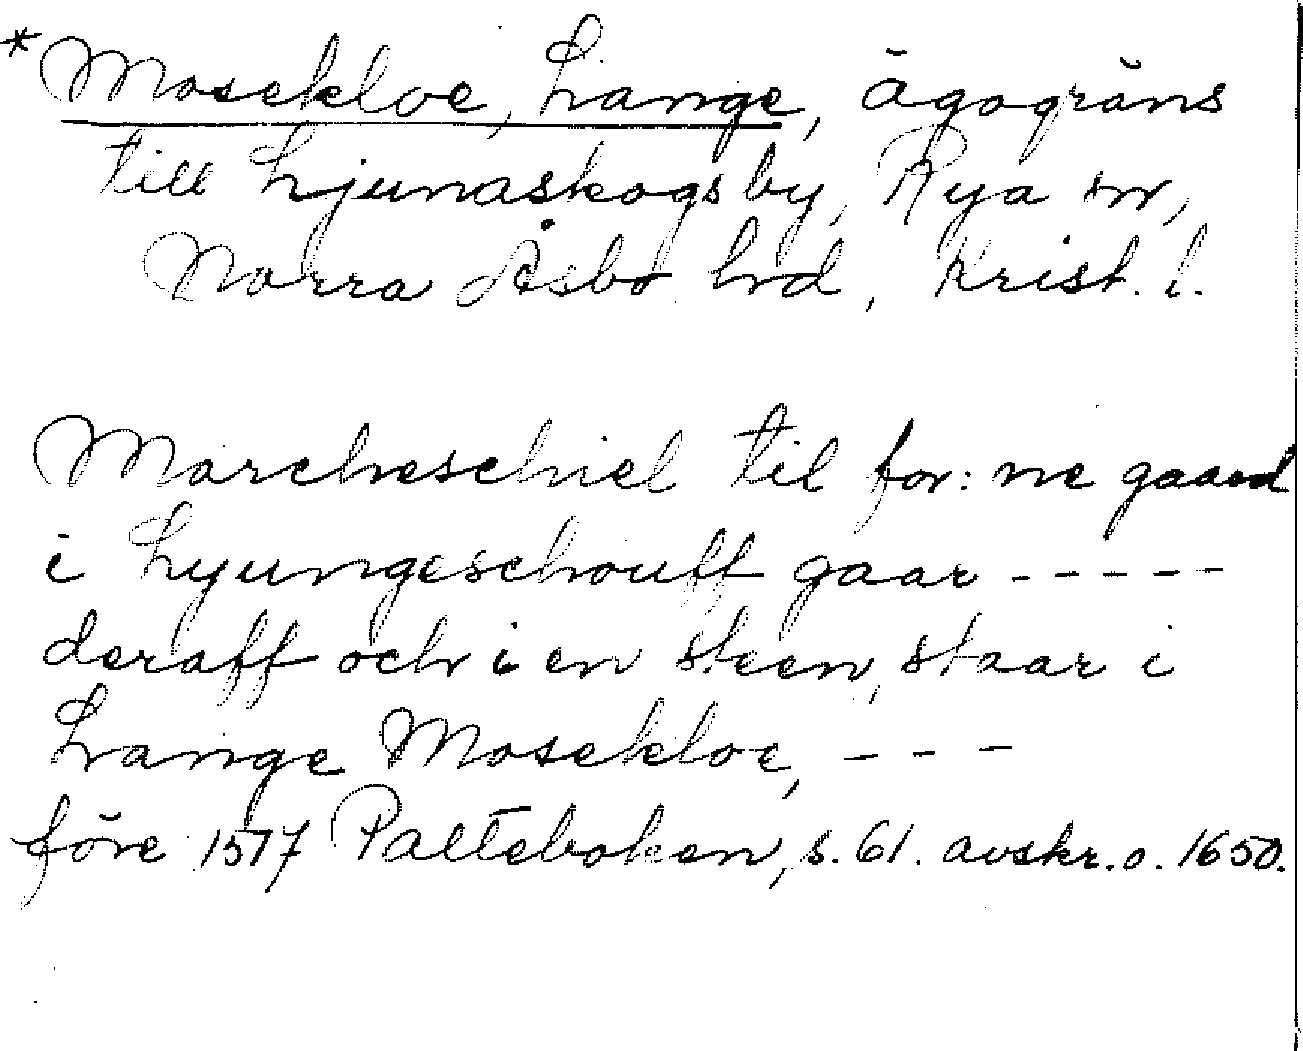 *Mosekloe, Lange, ägogräns
till Ljunaskogsby, Rya sn,
Norra Åsbo hrd, Krist. l.
Marcheschiel til for: ne gaard
i Lyungeschouff gaar - - - - -
deraff och i en steen, staar i
Lange Mosekloe, - - -
före 1577 Palteboken, s. 61. avskr. o. 1650.